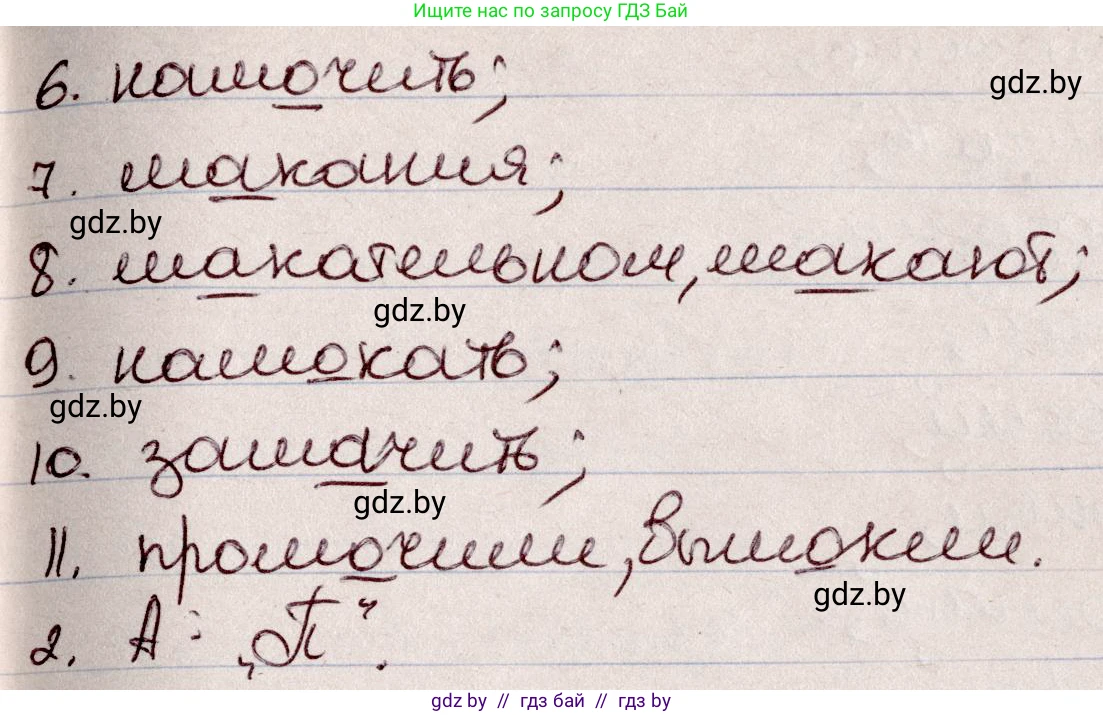 Ищите нас по запросу ГДЗ Бай
6. намочить;
gdz.by
7. макания;
gdz.by
8. макательном, макают;
gdz.by
9. намокать;
gdz.by
10. замачить;
gdz.by
11. промочили, вымокли.
gdz.by
2. А: „П“.
gdz.by // гдз бай // гдз by